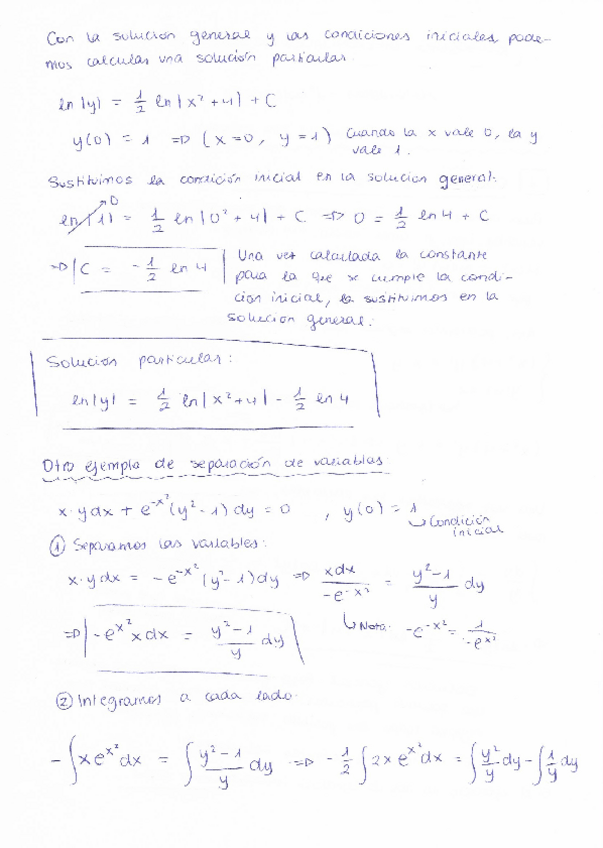 Con la solución general y las condiciones iniciales pode-
mos calcular una solución particular.
ln |y| = 1/2 ln |x² + 4| + C
y(0) = 1 => (x = 0, y = 1) Cuando la x vale 0, la y
vale 1.
Sustituimos la condición inicial en la solución general:
0
ln |1| = 1/2 ln |0² + 4| + C => 0 = 1/2 ln 4 + C
=> C = - 1/2 ln 4 Una vez calculada la constante
para la que se cumple la condi-
ción inicial, la sustituimos en la
solución general:
Solución particular:
ln |y| = 1/2 ln |x² + 4| - 1/2 ln 4
Otro ejemplo de separación de variables
x · y dx + e^-x² (y² - 1) dy = 0 , y(0) = 1
↳ Condición
inicial
① Separamos las variables:
x · y dx = - e^-x² (y² - 1) dy => x dx / -e^-x² = y² - 1 / y dy
=> - e^x² x dx = y² - 1 / y dy ↳ Nota: -e^-x² = 1 / -e^x²
② Integramos a cada lado.
- ∫ x e^x² dx = ∫ y² - 1 / y dy => - 1/2 ∫ 2x e^x² dx = ∫ y²/y dy - ∫ 1/y dy